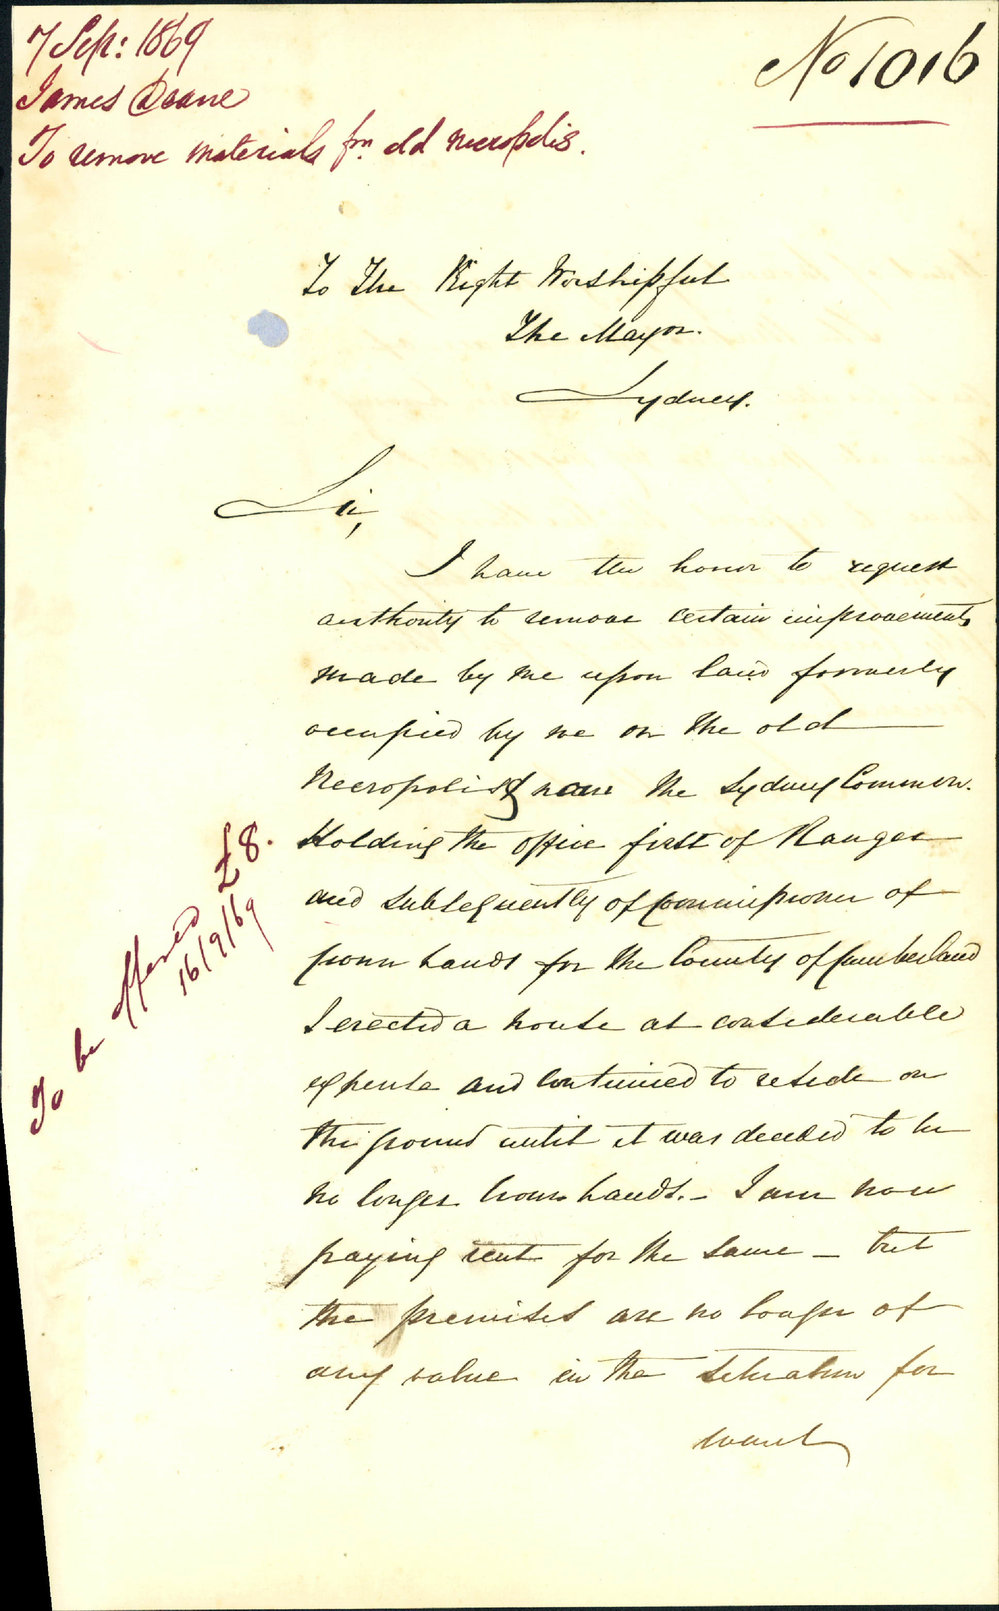 7 Sep: 1869
James Doane
To remove materials fm. old necropolis.
No 1016
To The Right Worshipful
The Mayor.
Sydney.
Sir,
I have the honor to request
authority to remove certain improvements
made by me upon land formerly
occupied by me on the old
Necropolis near the Sydney Common.
Holding the office first of Ranger
and subsequently of Commissioner of
Crown Lands for the County of Cumberland
I erected a house at considerable
expense and continued to reside on
the ground until it was decided to be
no longer Crown Lands. – I am now
paying rent for the same – but
the premises are no longer of
any value in the situation for
want
To be offered £8.
16/9/69